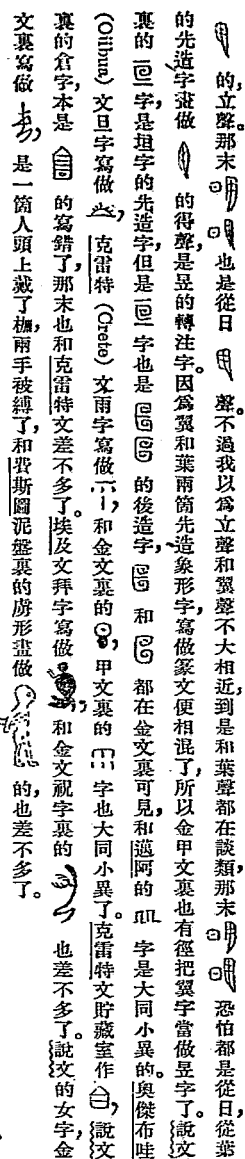 的,立聲。那末 也是從日 聲。不過我以爲立聲和翼聲不大相近,到是和葉聲都在談類,那末 恐怕都是從日,從葉
的先造字,𤰞做 的得聲,是昱的轉注字。因爲翼和葉兩箇先造象形字,寫做篆文便相混了,所以金甲文裏也有徑把翼字當做昱字了。說文
裏的 字,是垣字的先造字,但是 字也是 的後造字, 和 都在金文裏可見,和邁阿的 字是大同小異的。奧傑布哇
(Ojibua)文旦字寫做 ,克雷特(Crete)文雨字寫做 ,和金文裏的 ,甲文裏的 字也大同小異了。克雷特文貯藏室作 ,說文
裏的倉字,本是 的寫錯了,那末也和克雷特文差不多了。埃及文拜字寫做 ,和金文祝字裏的 也差不多了。說文的女字,金
文裏寫做 ,是一箇人頭上戴了枷,兩手被縛了,和費斯圖泥盤裏的虜形畫做 的,也差不多了。